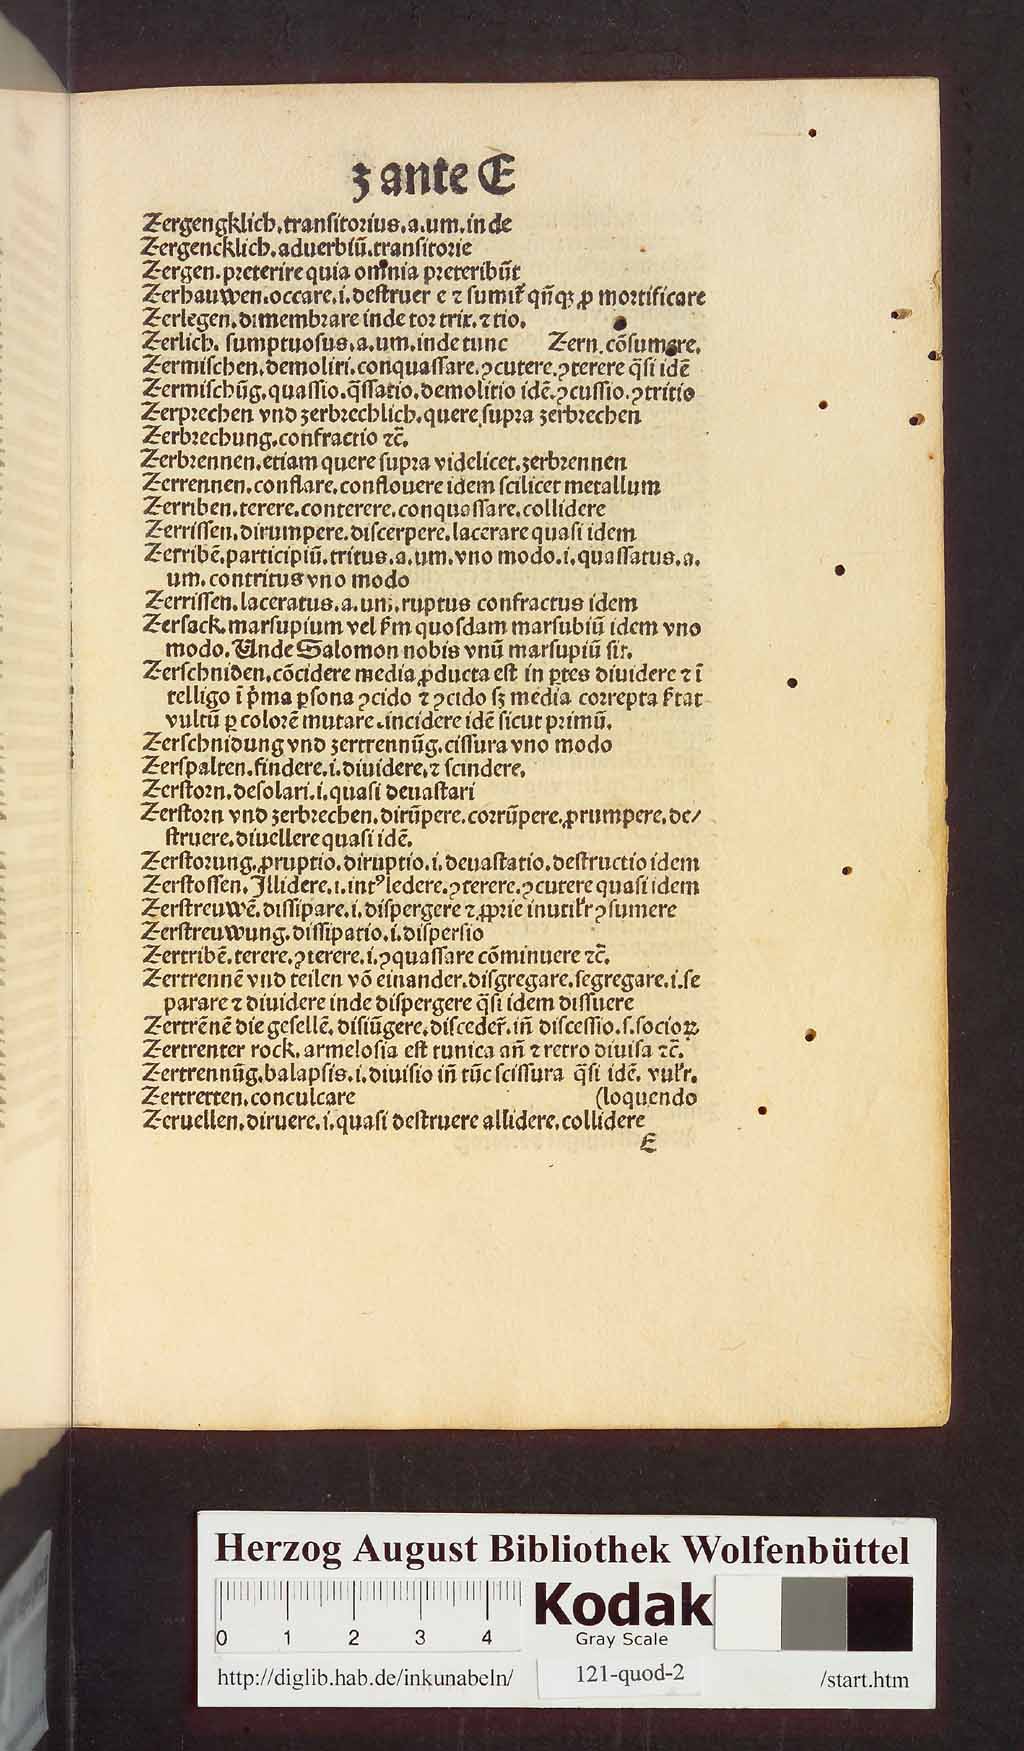 ʒ ante E
Zergengklich.transitorius.a.um.inde
Zergencklich.aduerbiū.transitorie
Zergen.preterire quia omnia preteribūt
Zerhauwen.occare.i.destruer e ⁊ sumit᷑ qn̄qꝫ ꝓ mortificare
Zerlegen.dimembrare inde tor trix.⁊ tio.
Zerlich. sumptuosus.a.um.inde tunc Zern.cōsumere.
Zermischen.demoliri.conquassare.ꝯcutere.ꝯterere q̄si idē
Zermischūg.quassio.q̄ssatio.demolitio idē.ꝯcussio.ꝯtritio
Zerprechen vnd zerbrechlich.quere supra zerbrechen
Zerbrechung.confractio ⁊c̄.
Zerbrennen.etiam quere supra videlicet.zerbrennen
Zerrennen.conflare.conflouere idem scilicet metallum
Zerriben.terere.conterere.conquassare.collidere
Zerrissen.dirumpere.discerpere.lacerare quasi idem
Zerribē.participiū.tritus.a.um.vno modo.i.quassatus.a.
um.contritus vno modo
Zerrissen.laceratus.a.um.ruptus confractus idem
Zersack.marsupium vel k̄m quosdam marsubiū idem vno
modo.Unde Salomon nobis vnū marsupiū sit.
Zerschniden.cōcidere media ꝓducta est in ꝑtes diuidere ⁊ ī
telligo ī p̄ma ꝑsona ꝯcido ⁊ ꝯcido sꝫ media correpta
vultū ꝑ colorē mutare.incidere idē sicut primū.
Zerschnidung vnd zertrennūg.cissura vno modo
Zerspalten.findere.i.diuidere.⁊ scindere.
Zerstorn.desolari.i.quasi deuastari
Zerstorn vnd zerbrechen.dirūpere.corrūpere.ꝓrumpere.de/
struere.diuellere quasi idē.
Zerstorung.ꝓruptio.diruptio.i.deuastatio.destructio idem
Zerstossen.Illidere.i.intꝰ ledere.ꝯterere.ꝯcutere quasi idem
Zerstreuwē.dissipare.i.dispergere ⁊ ꝓprie inutil᷑r ꝯsumere
Zerstreuwung.dissipatio.i.dispersio
Zertribē.terere.ꝯterere.i.ꝯquassare cōminuere ⁊c̄.
Zertrennē vnd teilen vō einander.disgregare.segregare.i.se
parare ⁊ diuidere inde dispergere q̄si idem dissuere
Zertrēnē die gesellē.disiūgere.disceder᷑.in̄ discessio.s.socioꝝ
Zertrenter rock.armelosia est tunica an̄ ⁊ retro diuisa ⁊c̄.
Zertrennūg.balapsis.i.diuisio in̄ tūc scissura q̄si idē.vul᷑r.
Zertretten.conculcare (loquendo
Zeruellen.diruere.i.quasi destruere allidere.collidere
E
Herzog August Bibliothek Wolfenbüttel
0 1 2 3 4
Kodak
Gray Scale
http://diglib.hab.de/inkunabeln/ 121-quod-2 /start.htm